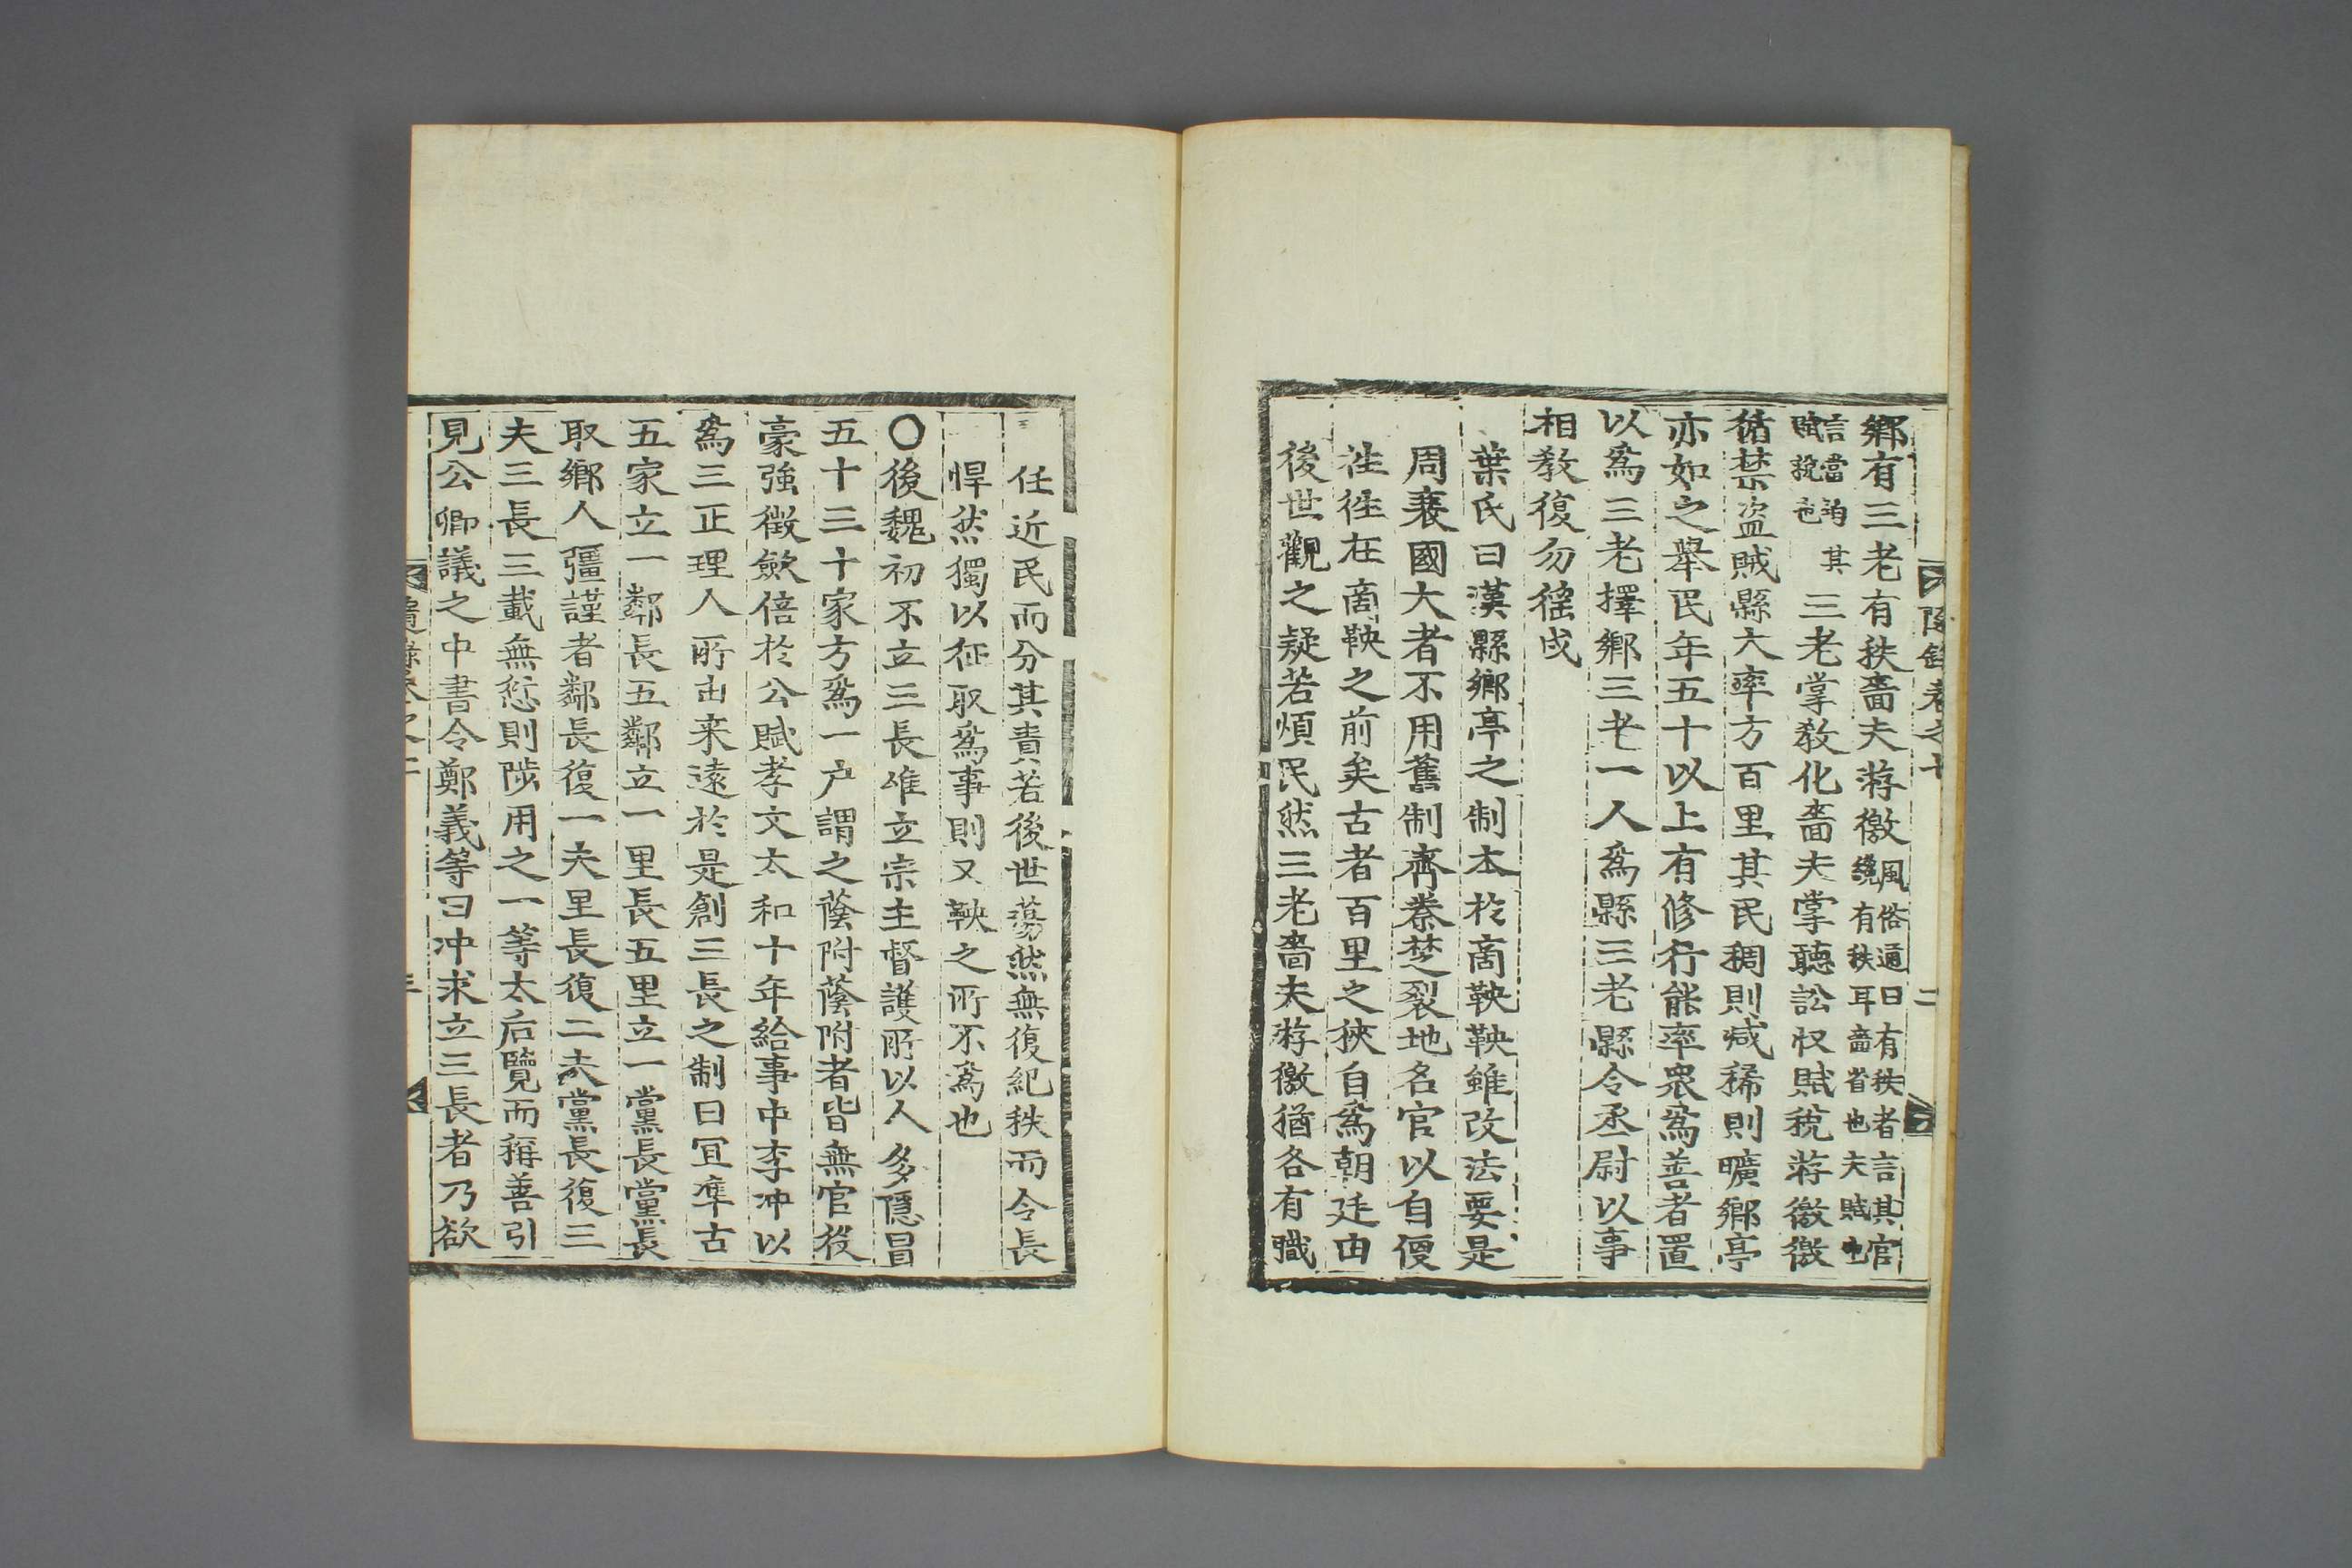 鄕有三老有秩嗇夫游徼風俗通曰有秩者言其官
緫有秩耳嗇省也夫賦也
言當均其
賦稅也
三老掌敎化嗇夫掌聽訟収賦稅游徼徼
循禁盜賊縣大率方百里其民稠則减稀則曠鄕亭
亦如之舉民年五十以上有修行能率衆爲善者置
以爲三老擇鄕三老一人爲縣三老縣令丞尉以事
相敎復勿徭戍
葉氏曰漢縣鄕亭之制本於商鞅鞅雖改法要是
周衰國大者不用舊制齊秦楚裂地名官以自便
往徃在商鞅之前矣古者百里之狹自爲朝廷由
後世觀之疑若煩民然三老嗇夫游徼猶各有職
任近民而分其責若後世蕩然無復紀秩而令長
悍然獨以征取爲事則又鞅之所不爲也
〇後魏初不立三長唯立宗主督護所以人多隱冒
五十三十家方爲一户謂之蔭附蔭附者皆無官役
豪強徵歛倍於公賦孝文太和十年給事中李冲以
爲三正理人所由来遠於是創三長之制曰宜準古
五家立一鄰長五鄰立一里長五里立一黨長黨長
取鄕人彊謹者鄰長復一夫里長復二夫黨長復三
夫三長三載無愆則陟用之一等太后覽而稱善引
見公卿議之中書令鄭義等曰冲求立三長者乃欲